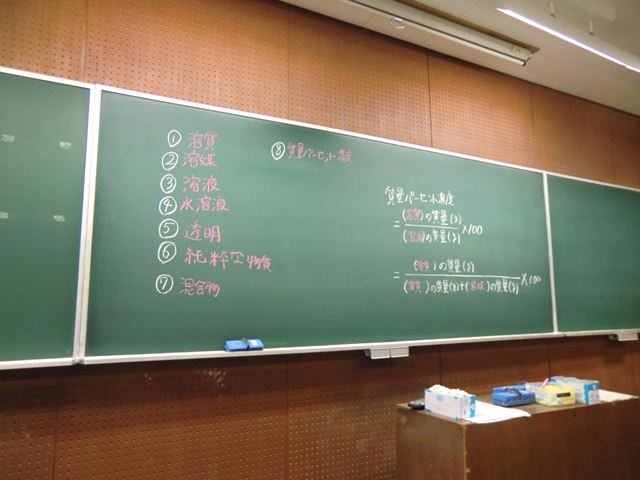 ① 溶質
② 溶媒
③ 溶液
④ 水溶液
⑤ 透明
⑥ 純粋な物質
⑦ 混合物
⑧ 質量パーセント濃度
質量パーセント濃度
= (溶質)の質量(g) / (溶液)の質量(g) ×100
= (溶質)の質量(g) / (溶質)の質量(g)+(溶媒)の質量(g) ×100